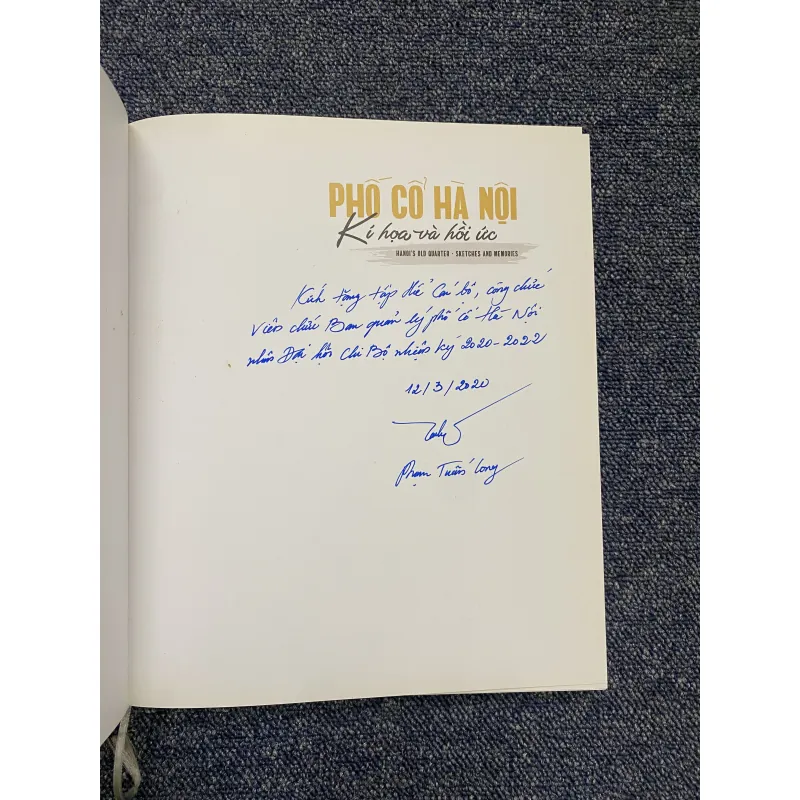 PHỐ CỔ HÀ NỘI
Kí họa và hồi ức
HANOI'S OLD QUARTER - SKETCHES AND MEMORIES
Kính tặng tập thể Cán bộ, công chức
Viên chức Ban quản lý phố cổ Hà Nội
nhân Đại hội Chi Bộ nhiệm kỳ 2020-2022
12/3/2020
Phạm Tuấn Long